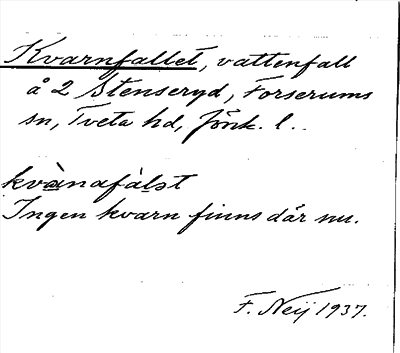 Kvarnfallet, vattenfall
å 2 Stenseryd, Forserums
sn, Tveta hd, Jönk. l.
kvànafàlət
Ingen kvarn finns där nu.
F. Neij 1937.